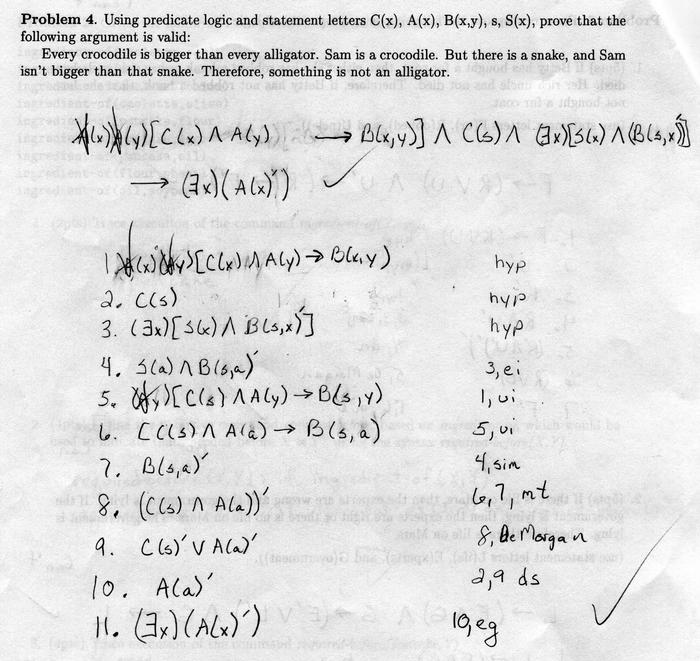 Problem 4. Using predicate logic and statement letters C(x), A(x), B(x,y), s, S(x), prove that the
following argument is valid:
Every crocodile is bigger than every alligator. Sam is a crocodile. But there is a snake, and Sam
isn't bigger than that snake. Therefore, something is not an alligator.
∀(x)∀(y)[C(x) ∧ A(y) → B(x,y)] ∧ C(s) ∧ (∃x)[S(x) ∧ (B(s,x))']
→ (∃x)(A(x)') ✓
1. ∀(x)(∀y)[C(x) ∧ A(y) → B(x,y) hyp
2. C(s) hyp
3. (∃x)[S(x) ∧ B(s,x)'] hyp
4. S(a) ∧ B(s,a)' 3, ei
5. (∀y)[C(s) ∧ A(y) → B(s,y) 1, ui
6. [C(s) ∧ A(a) → B(s,a) 5, ui
7. B(s,a)' 4, sim
8. (C(s) ∧ A(a))' 6, 7, mt
9. C(s)' ∨ A(a)' 8, De Morgan
10. A(a)' 2, 9 ds
11. (∃x)(A(x)') 10, eg ✓